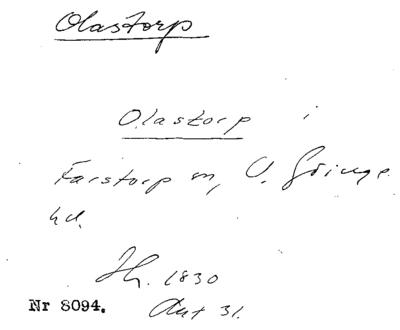 Olastorp
Olastorp i
Farstorp sn, V. Göinge
hd.
Jh. 1830
Nr 8094. Akt 31.